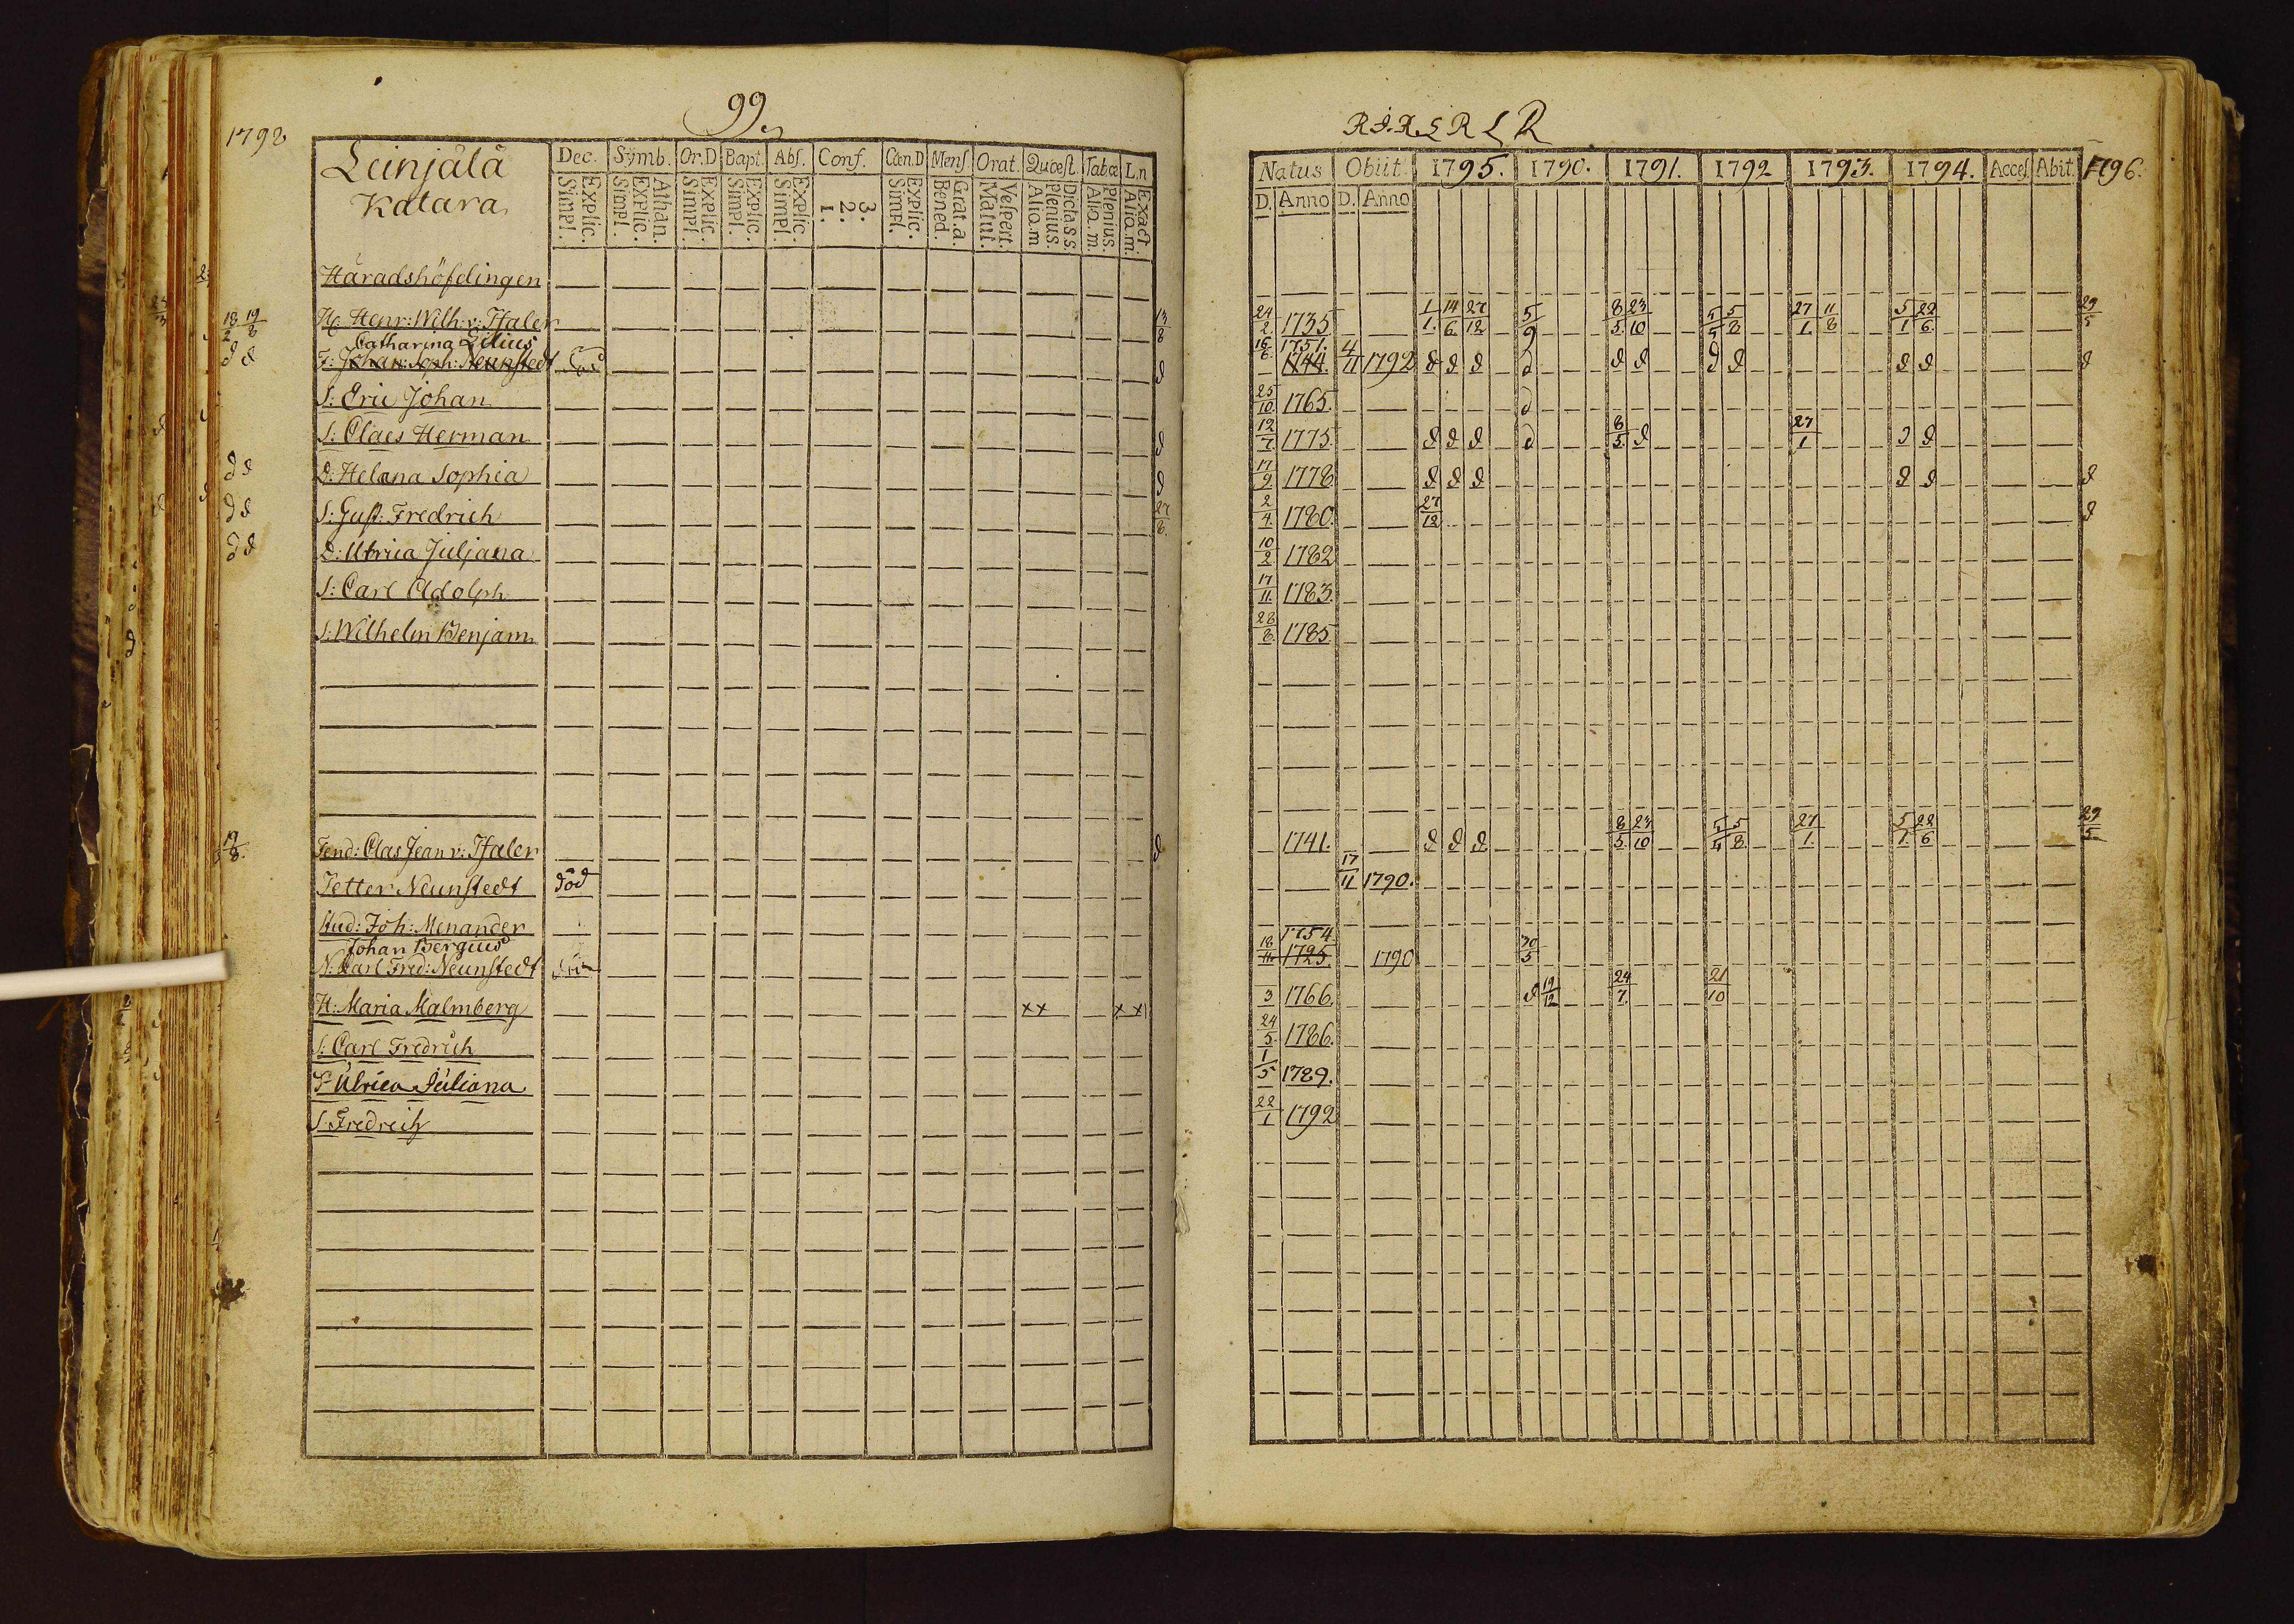 99.
1792
Leinjälä
Katara
Dec. Symb. Or.D Bapt. Abs. Conf. Cœn.D Mens Orat. Quæst. Tabæ L.n
Explic. Simpl. Athan. Explic. Simpl. Explic. Simpl. Explic. Simpl. Explic. Simpl. 3. 2. 1. Explic. Simpl. Grat.a. Bened. Vespert. Matut. Dicta s s. Plenius. Aliq.m Plenius. Aliq.m. Exact. Aliq.m.
Häradshöfdingen
H: Henr: Wilh: v: Hfaler
Catharina Lilius
F: Johan: Soph: Neunstedt
S: Eric Johan
S: Claes Herman
D: Helena Sophia
S: Gust: Fredrich
D: Ulrica Juljana
S: Carl Adolph
S: Wilhelm Benjam
Fend: Clas Jean v: Hfaler
Petter Neunstedt död
Stud: Joh: Menander
Johan Bergius
N: Carl Fred: Neunstedt
H: Maria Malmberg xx xx
S: Carl Fredrich
D Ulrica Juliana
S: Fredrich
Natus Obiit 1795. 1790. 1791. 1792 1793. 1794. Acces. Abit. 1796.
D. Anno D. Anno
24/2 1735 1/1. 14/6 27/12 5/9 8/5 23/10 5/5 5/8 27/1 11/8 5/1 22/6 29/5
16/6 1751.
1744. 4/11 1792
25/10 1765.
12/7 1775. 8/5 27/1
17/9 1778
2/4 1780. 27/12
10/2 1782
17/11 1783.
28/8 1785.
1741. 8/5 23/10 5/4 5/8 27/1. 5/1 22/6 29/5
17/11 1790.
1754
18/11 1725. 1790 30/5
3 1766. 19/12 24/7 21/10
24/5 1786.
1/5 1789.
22/1 1792